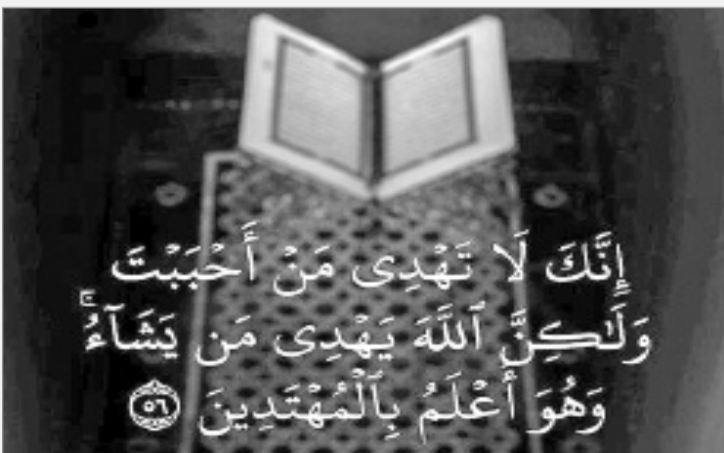 إِنَّكَ لَا تَهْدِى مَنْ أَحْبَبْتَ
وَلَٰكِنَّ ٱللَّهَ يَهْدِى مَن يَشَآءُ ۚ
وَهُوَ أَعْلَمُ بِٱلْمُهْتَدِينَ ٥٦